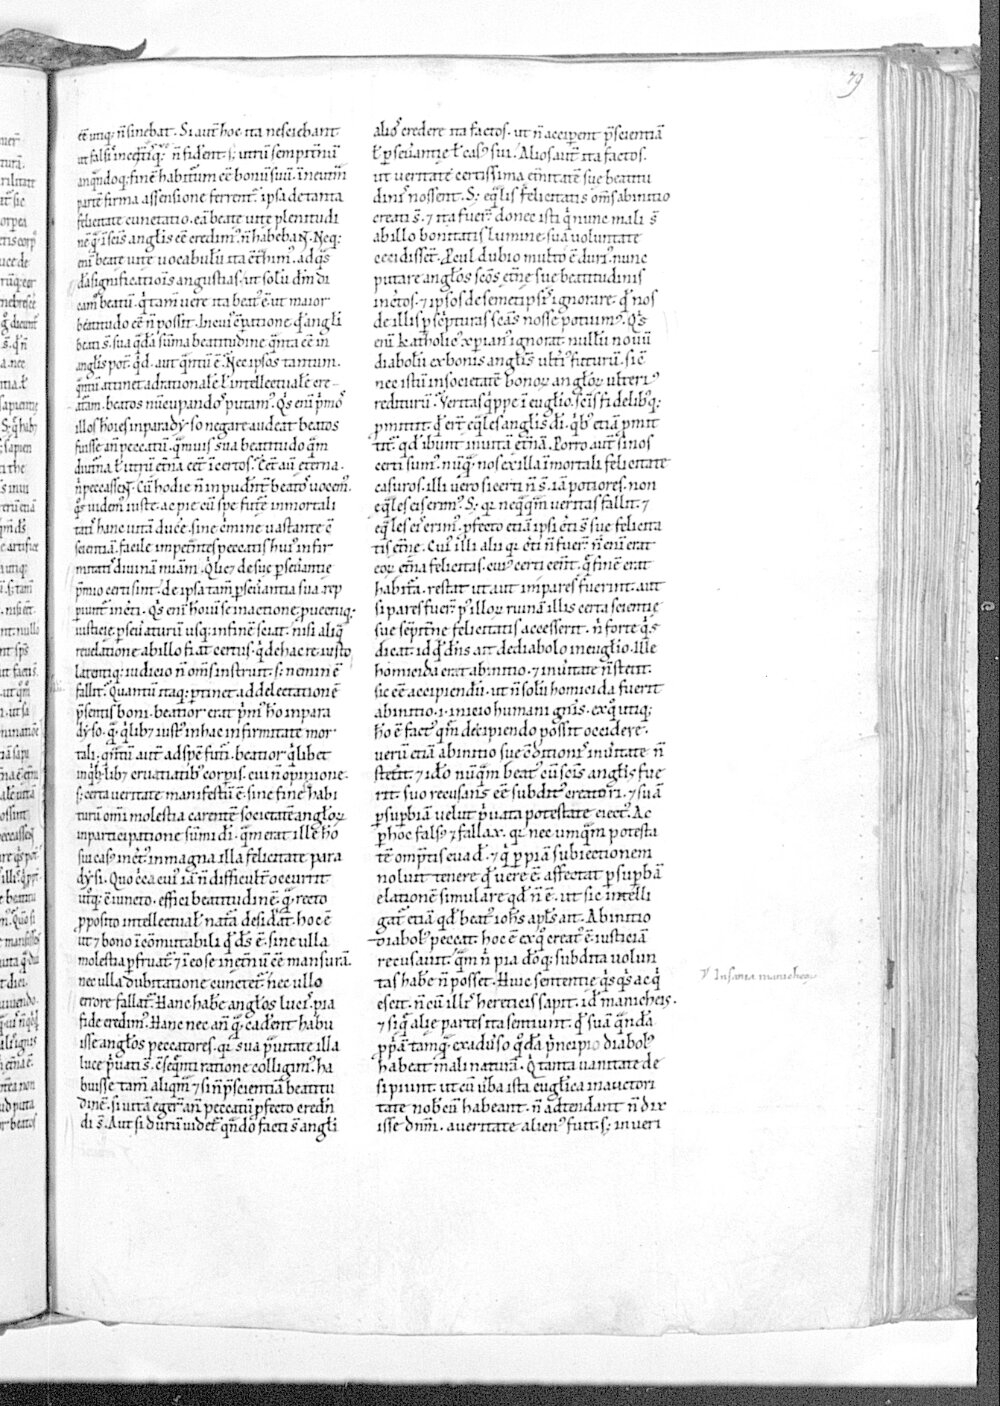 79
ēē utiq; n̄ sinebat. Si aut̄ hoc ita nesciebant
ut falsi
n̄ fident s; utrū sempit̄nū
anq̄ndoq; finē habitum eē bonū suū. ī neutrā
parte firma assensione ferrent̄. ipsa de tanta
felicitate cunctatio. eā beate uite plenitudi
nē q̄ ī sc̄is angl̄is eē credim᷒. n̄ habeban̄t. Neq;
beate uite uocabulū ita
significationis angustias. ut solū dm̄ di
cam᷒ beatū. q̄ tam̄ uere ita beat᷒ ē. ut maior
beatitudo eē n̄ possit. In cui᷒ cp̄atione q̄ angl̄i
beati s̄. sua q̄dā sūma beatitudine q̄nta eē in
angl̄is pot̄. q̄d. aut q̄ntū ē. Nec ipsos tantum.
q̄ntū attinet ad rationalē ł intellectualē cre-
atam̄. beatos nūcupandos putam᷒. Q̄s enī p̄mos
illos hoīes in paradyso negare audeat beatos
fuisse an̄ peccatū. q̄muis sua beatitudo q̄m
diut̄na ł utrū et̄na eēt īcertos. Eēt aū eterna.
n̄ peccassent̄. Cū hodie n̄ inpudn̄t̄ beatos uocem᷒.
q̄s uidem᷒ iuste. ac pie cū spe fut̄e inmortali
tatis hanc uitā ducē. sine c̄mine uastante c̄
scientiā. facile impet̄ntes peccatis hui᷒ infir
mitatis diuinā mīam. Qui de suę p̄seūantie
p̄mio certi sint. de ipsa tam̄ p̄seūantia sua rep
piunt᷒ inc̄ti. Q̄s enī hoīuū se in actione puectuq;
iusticie p̄seūaturū usq; in finē sciat. nisi aliq̄
reuelatione ab illo fiat certus. q̄ de hac re iusto
latentiq; iudicio n̄ om̄s instruit. s; neminē
fallit. Quantū itaq; p̄tinet ad delectationē
p̄sentis boni. beatior erat p̄m᷒ hō in para
dyso. q̄ q̄libȝ iust᷒ in hac infirmitate mor
tali. q̄ntū aut̄ ad spē fut̄i. beatior q̄libet
inq̄buslibȝ cruciatibȝ corpis. cui n̄ opinione.
s; certa ueritate manifestū ē. sine fine habi
turū om̄i molestia carentē societatē anglorꝝ
in participatione sūmi di. q̄m erat ille hō
sui casus inc̄tus in magna illa felicitate para
dysi. Quo c̄ca cui᷒ iā n̄ difficult̄ occurrit
utq; ē iuncto. effici beatitudinē. q̄ recto
pposito intellectual᷒ nat̄a desid̄at. hoc ē
ut ⁊ bono īcōmutabili q̄ d̄s ē. sine ulla
molestia pfruat̄. ⁊ ī eo se in et̄nū eē mansurā.
nec ulla dubitatione cunctet̄. nec ullo
errore fallat̄. Hanc habē angl̄os lucis pia
fide credim᷒. Hanc nec an̄ q̄ cad̄ent habu
isse angl̄os peccatores. q̄ sua p̄uitate illa
luce p̄uati s̄. c̄seq̄nti ratione colligim᷒. ha
buisse tam̄ aliqm̄ ⁊ si n̄ p̄scientiā beatitu
dinē. si uitā egert̄ an̄ peccatū pfecto eredn̄
di s̄. Aut si durū uidet̄ q̄ndō facti s̄ angl̄i
alios credere ita factos. ut n̄ acciperent p̄scientiā
ł p̄seūantie ł casus sui. Alios aut̄ ita factos.
ut ueritatē certissima et̄nitatē sue beatitu
dinis nossent. S; eq̄lis felicitatis om̄s ab initio
creati s̄. ⁊ ita fuer̄ donec isti q̄ nunc mali s̄
ab illo bonitatis lumine sua uoluntate
cecidissēt. Pcul dubio multo ē duri᷒. nunc
putare angl̄os sc̄os et̄ne sue beatitudinis
inc̄tos. ⁊ ipsos de semetipsis ignorare. q̄d nos
de illis p scripturas sc̄as nosse potuim᷒. Q̄s
enī katholic᷒ xp̄ian᷒ ignorat. nullū nouū
diabolū ex bonis angl̄is ult̄ius futurū. sic
nec istū in societatē bonorꝝ angl̄orꝝ ulteri᷒
rediturū. Veritas q̄ppe ī euḡlio sc̄is fidelibq;
pmittit. q̄d ert̄ eq̄les angl̄is di. q̄b᷒ etiā pmit
tit̄. q̄d ibunt in uitā et̄nā. Porro aut̄ si nos
certi sum᷒. nūq̄ nos ex illa īmortali felicitate
casuros. illi uero si certi n̄ s̄. iā potiores. non
eq̄les eis erim᷒. S; q̄ neq̄q̄m ueritas fallit. ⁊
eq̄les eis erim᷒. pfecto etiā ipsi c̄ti s̄ sue felicita
tis et̄ne. Cui᷒ illi alii q̄ c̄ti n̄ fuer̄. n̄ enī erat
eorꝝ et̄na felicitas. cui᷒ certi eent̄. q̄ finē erat
habitā. restat ut aut impares fuerint. aut
si pares fuer̄ p᷒ illorꝝ ruinā illis certa scientie
sue sep̄it̄ne felicitatis accesserit. n̄ forte q̄s
dicat. id q̄ dn̄s ait de diabolo in euḡlio. Ille
homicida erat ab initio. ⁊ in ūitate n̄ stetit.
sic eē accipiendū. ut n̄ solū homicida fuerit
ab initio. i. inicio humani gn̄is. ex quo utiq;
hō ē fact᷒. q̄m decipiendo possit occidere.
uerū etiā ab initio sue c̄ditionis in ūitate n̄
stetit. ⁊ idō nūq̄m beat᷒ cū sc̄is angl̄is fue
rit. suo recusans eē subdit᷒ creatori. ⁊ sua
psupbiā uelut p̄uata potestate eiect᷒. Ac
p hoc fals᷒ ⁊ fallax. q̄ nec umq̄m potesta
tē omp̄tis euad̄. ⁊ q̄ p piā subiectionem
noluit tenere q̄d uere ē. affectat p supbā
elationē simulare q̄d n̄ ē. ut sic intelli
gat̄ etiā q̄d beat᷒ iohs̄ apl̄s ait. Ab initio
diabol᷒ peccat. hoc ē ex q̄ creat᷒ ē iusticiā
recusauit. q̄m n̄ pia dōq; subdita uolun
tas habē n̄ posset. Huic sententie q̄sq̄s ac q̄
escit. n̄ cū illis hereticis sapit. id᷒ manicheis.
⁊ siq̄ alie partes ita sentiunt. q̄d suā q̄ndā
ppā tamq̄ ex aduso q̄dā p̄ncipio diabol᷒
habeat mali naturā. Q̄ tanta uanitate de
sipiunt. ut cū ūba ista euḡlica in auctori
tate nobcū habeant. n̄ adtendant n̄ dix
isse dn̄m. a ueritate alien᷒ fuit. s; in ueri
Insania manicheorꝝ